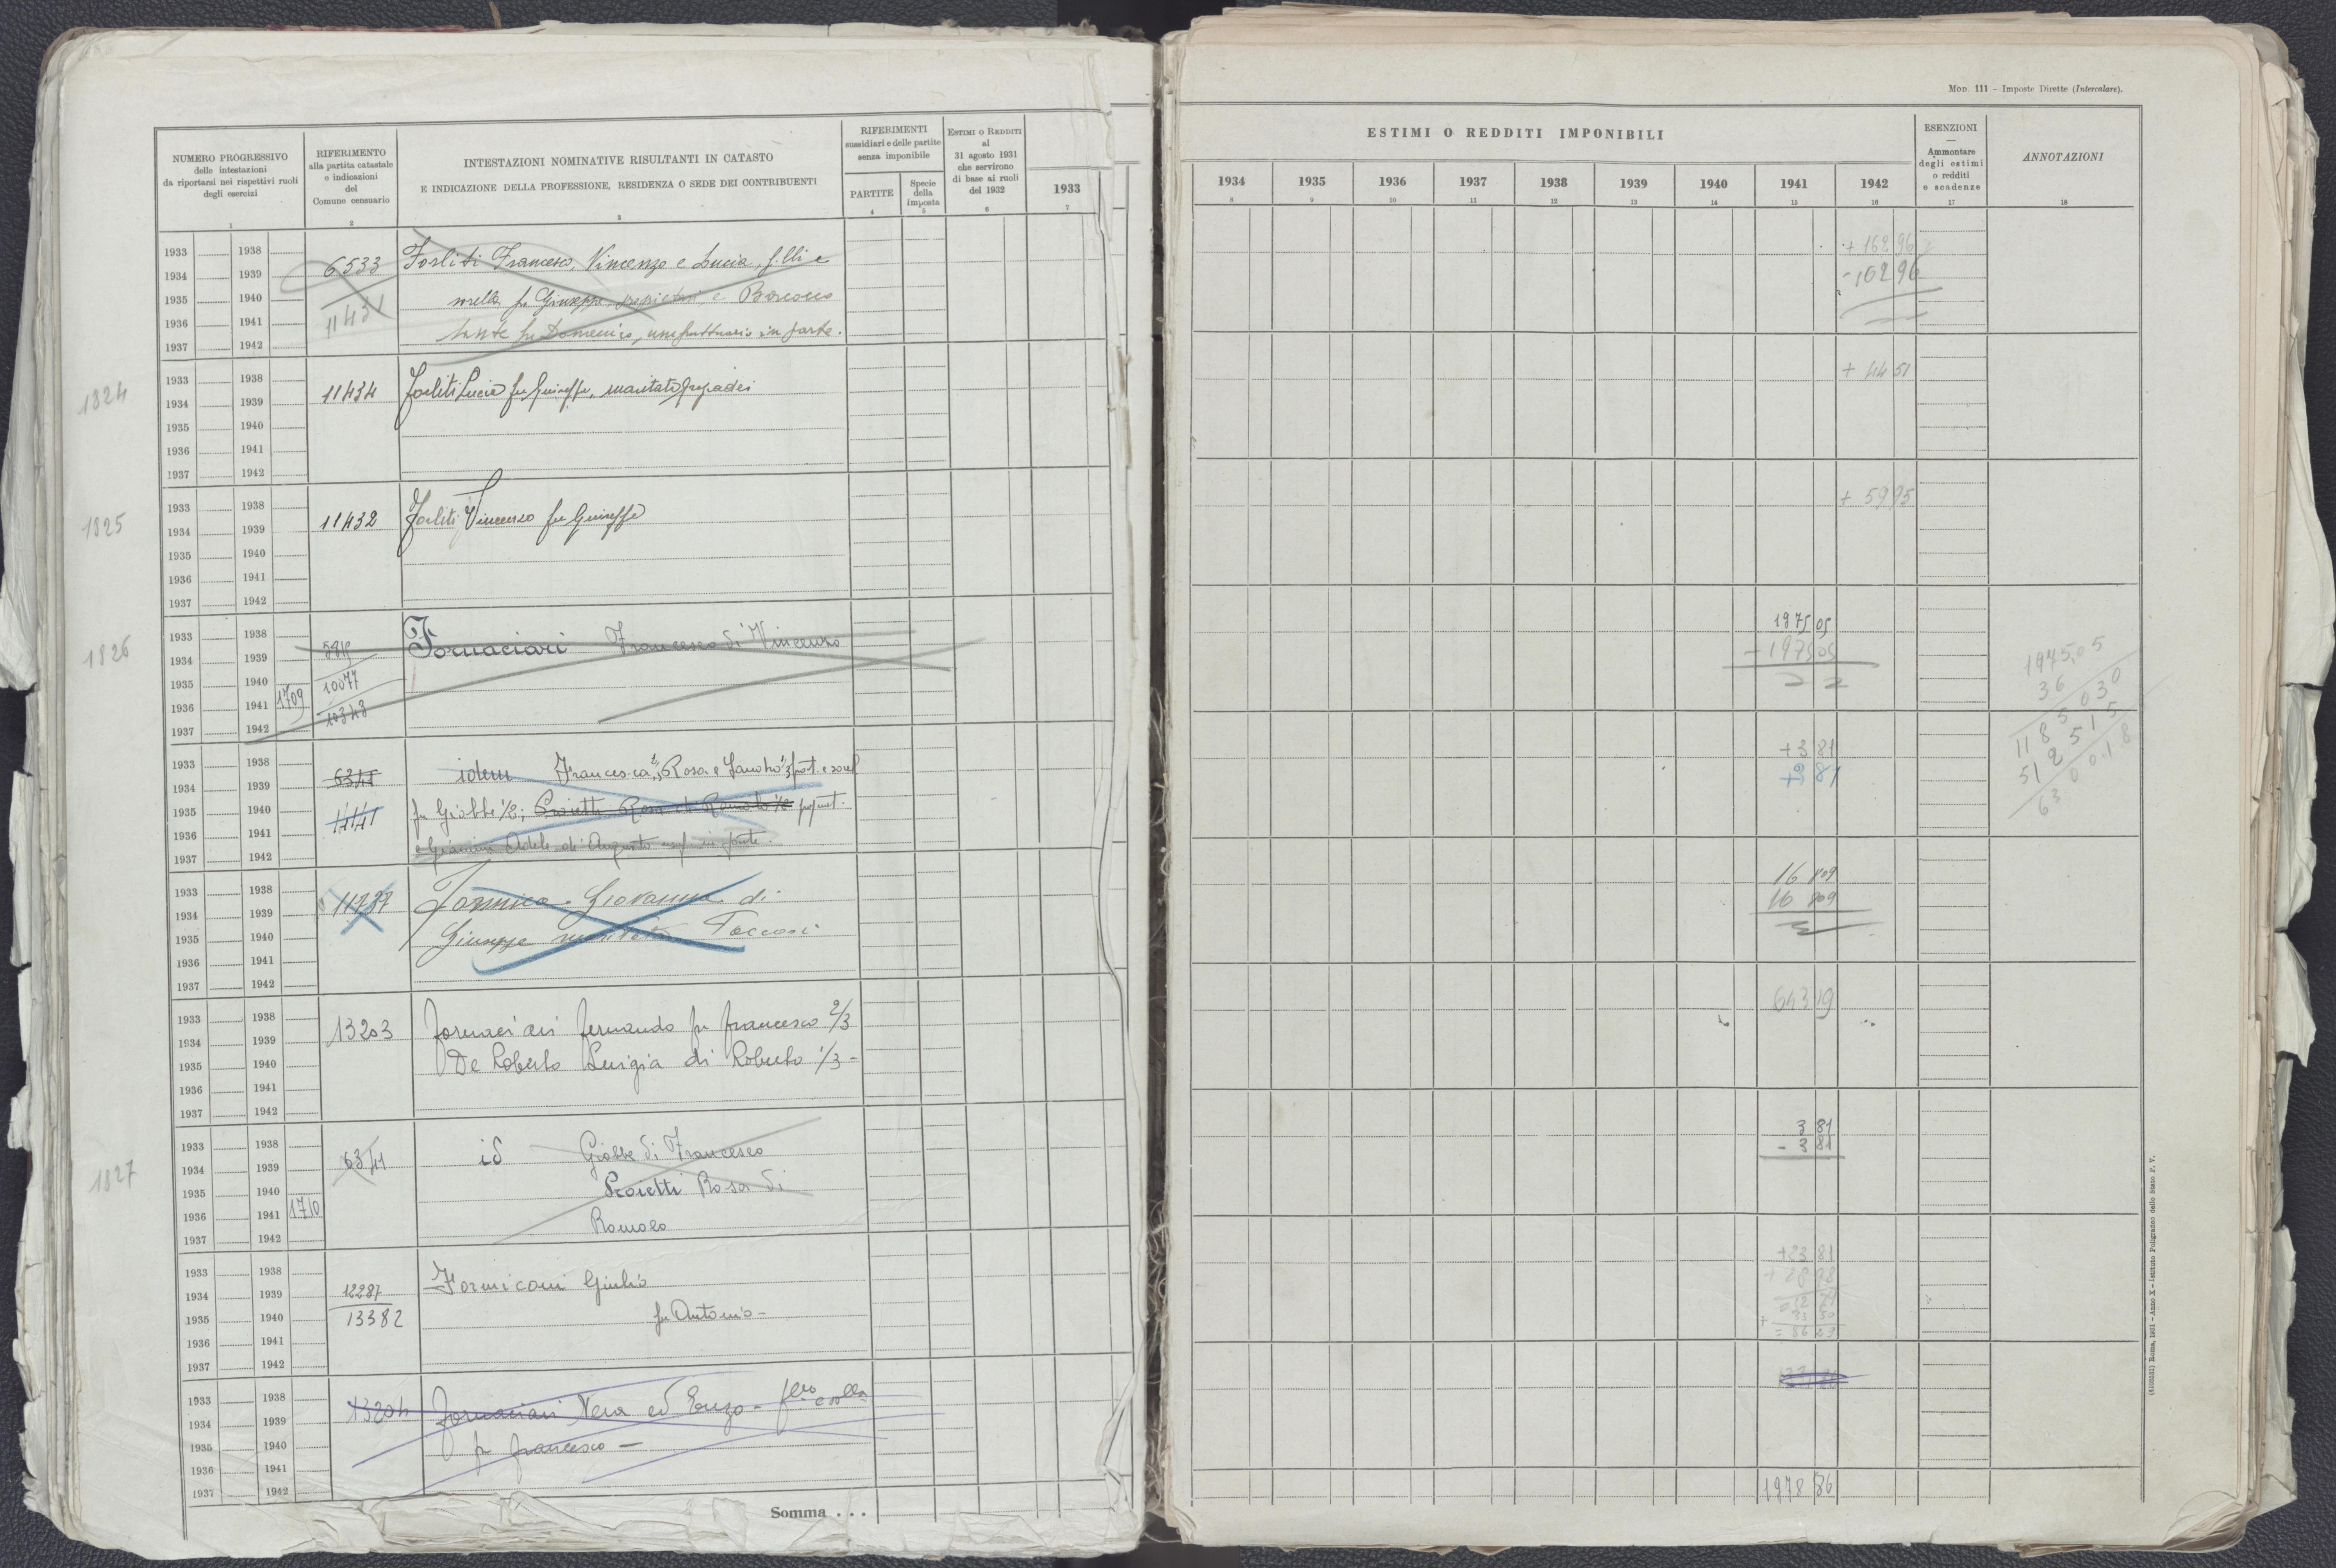 MOD. 111 – Imposte Dirette (Intercalare).
NUMERO PROGRESSIVO
delle intestazioni
da riportarsi nei rispettivi ruoli
degli esercizi
1
RIFERIMENTO
alla partita catastale
e indicazioni
del
Comune censuario
2
INTESTAZIONI NOMINATIVE RISULTANTI IN CATASTO
E INDICAZIONE DELLA PROFESSIONE, RESIDENZA O SEDE DEI CONTRIBUENTI
3
RIFERIMENTI
sussidiari e delle partite
senza imponibile
PARTITE
4
Specie
della
imposta
5
ESTIMI O REDDITI
al
31 agosto 1931
che servirono
di base ai ruoli
del 1932
6
1933
7
ESTIMI O REDDITI IMPONIBILI
1934 1935 1936 1937 1938 1939 1940 1941 1942
8 9 10 11 12 13 14 15 16
ESENZIONI
—
Ammontare
degli estimi
o redditi
e scadenze
17
ANNOTAZIONI
18
1933 1938
1934 1939
1935 1940
1936 1941
1937 1942
6533
Forliti Francesco, Vincenzo e Lucia, f.lli e
sorella fu Giuseppe proprietari e
fu Domenico, usufruttuario in parte.
+ 162 96
- 162 96
1824
1933 1938
1934 1939
1935 1940
1936 1941
1937 1942
11434
Forliti Lucia fu Giuseppe, maritata
+ 44 51
1825
1933 1938
1934 1939
1935 1940
1936 1941
1937 1942
11432
Forliti Vincenzo fu Giuseppe
+ 59 95
1826
1933 1938
1934 1939
1935 1940
1936 1941 1709
1937 1942
10077
10343
Fornaciari Francesco di Vincenzo
1975 05
- 1975 05
1975,05
36
1933 1938
1934 1939
1935 1940
1936 1941
1937 1942
6341
idem Francesca, Rosa e
fu Giobbe 1/2; Proietti Rosa di Romolo 1/2
Giannini Adele di Augusto usuf. in parte.
+ 3 81
+ 3 81
1933 1938
1934 1939
1935 1940
1936 1941
1937 1942
11787
Formica Giovanna di
Giuseppe maritata Toccaci
16 809
16 809
1933 1938
1934 1939
1935 1940
1936 1941
1937 1942
13203
Fornaciari Fernando fu Francesco 2/3
De Roberto Luigia di Roberto 1/3 -
643 19
1827
1933 1938
1934 1939
1935 1940
1936 1941 1710
1937 1942
6341
id Giobbe di Francesco
Proietti Rosa di
Romolo
3 81
- 3 81
1933 1938
1934 1939
1935 1940
1936 1941
1937 1942
12287
13382
Formiconi Giulio
fu Antonio -
+ 23 81
1933 1938
1934 1939
1935 1940
1936 1941
1937 1942
13204
Fornaciari Vera ed Enzo -
fu Francesco —
Somma . . .
1978 86
(4103551) Roma, 1931 – Anno X – Istituto Poligrafico dello Stato P. V.